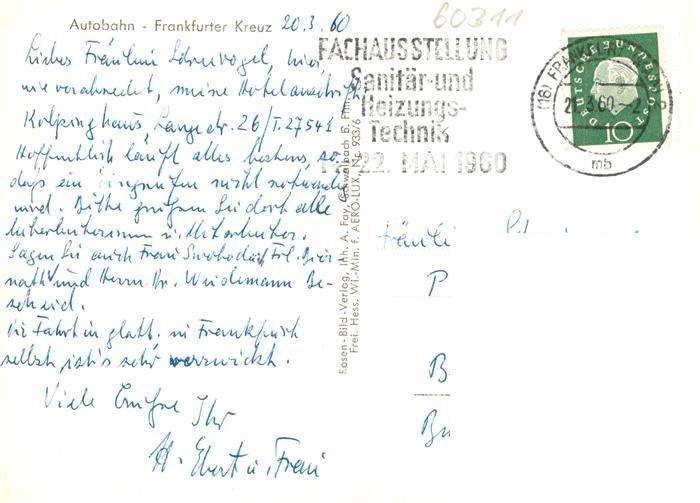 Autobahn - Frankfurter Kreuz 20.3.60
60311
Liebes Fräulein Schrevogel, hier
wie verabredet, meine Hotelanschrift
Kolpinghaus, Langestr. 26/T. 27541
Hoffentlich läuft alles bestens, so
daß ein eingreifen nicht notwendig
wird. Bitte grüßen Sie dort alle
Mitarbeiterinnen u. Mitarbeiter.
Sagen Sie auch Frau Swoboda, Frl. Bier
nath und Herrn Dr. Weidemann Be-
scheid.
Die Fahrt ging glatt. in Frankfurt
selbst ist's sehr verzwickt.
Viele Grüße Ihr
H. Ebert u. Frau
FACHAUSSTELLUNG
Sanitär- und
Heizungs-
Technik
22. MAI 1960
(16) FRANKFURT
3.60.-2
mb
DEUTSCHE BUNDESPOST
10
Rosen-Bild-Verlag, Inh. A. Fay, Schwalbach B. Ffm.
Frei. Hess. Wi.-Min. f. AERO-LUX, Nr. 933/6
Fräulei
P
B
Bu